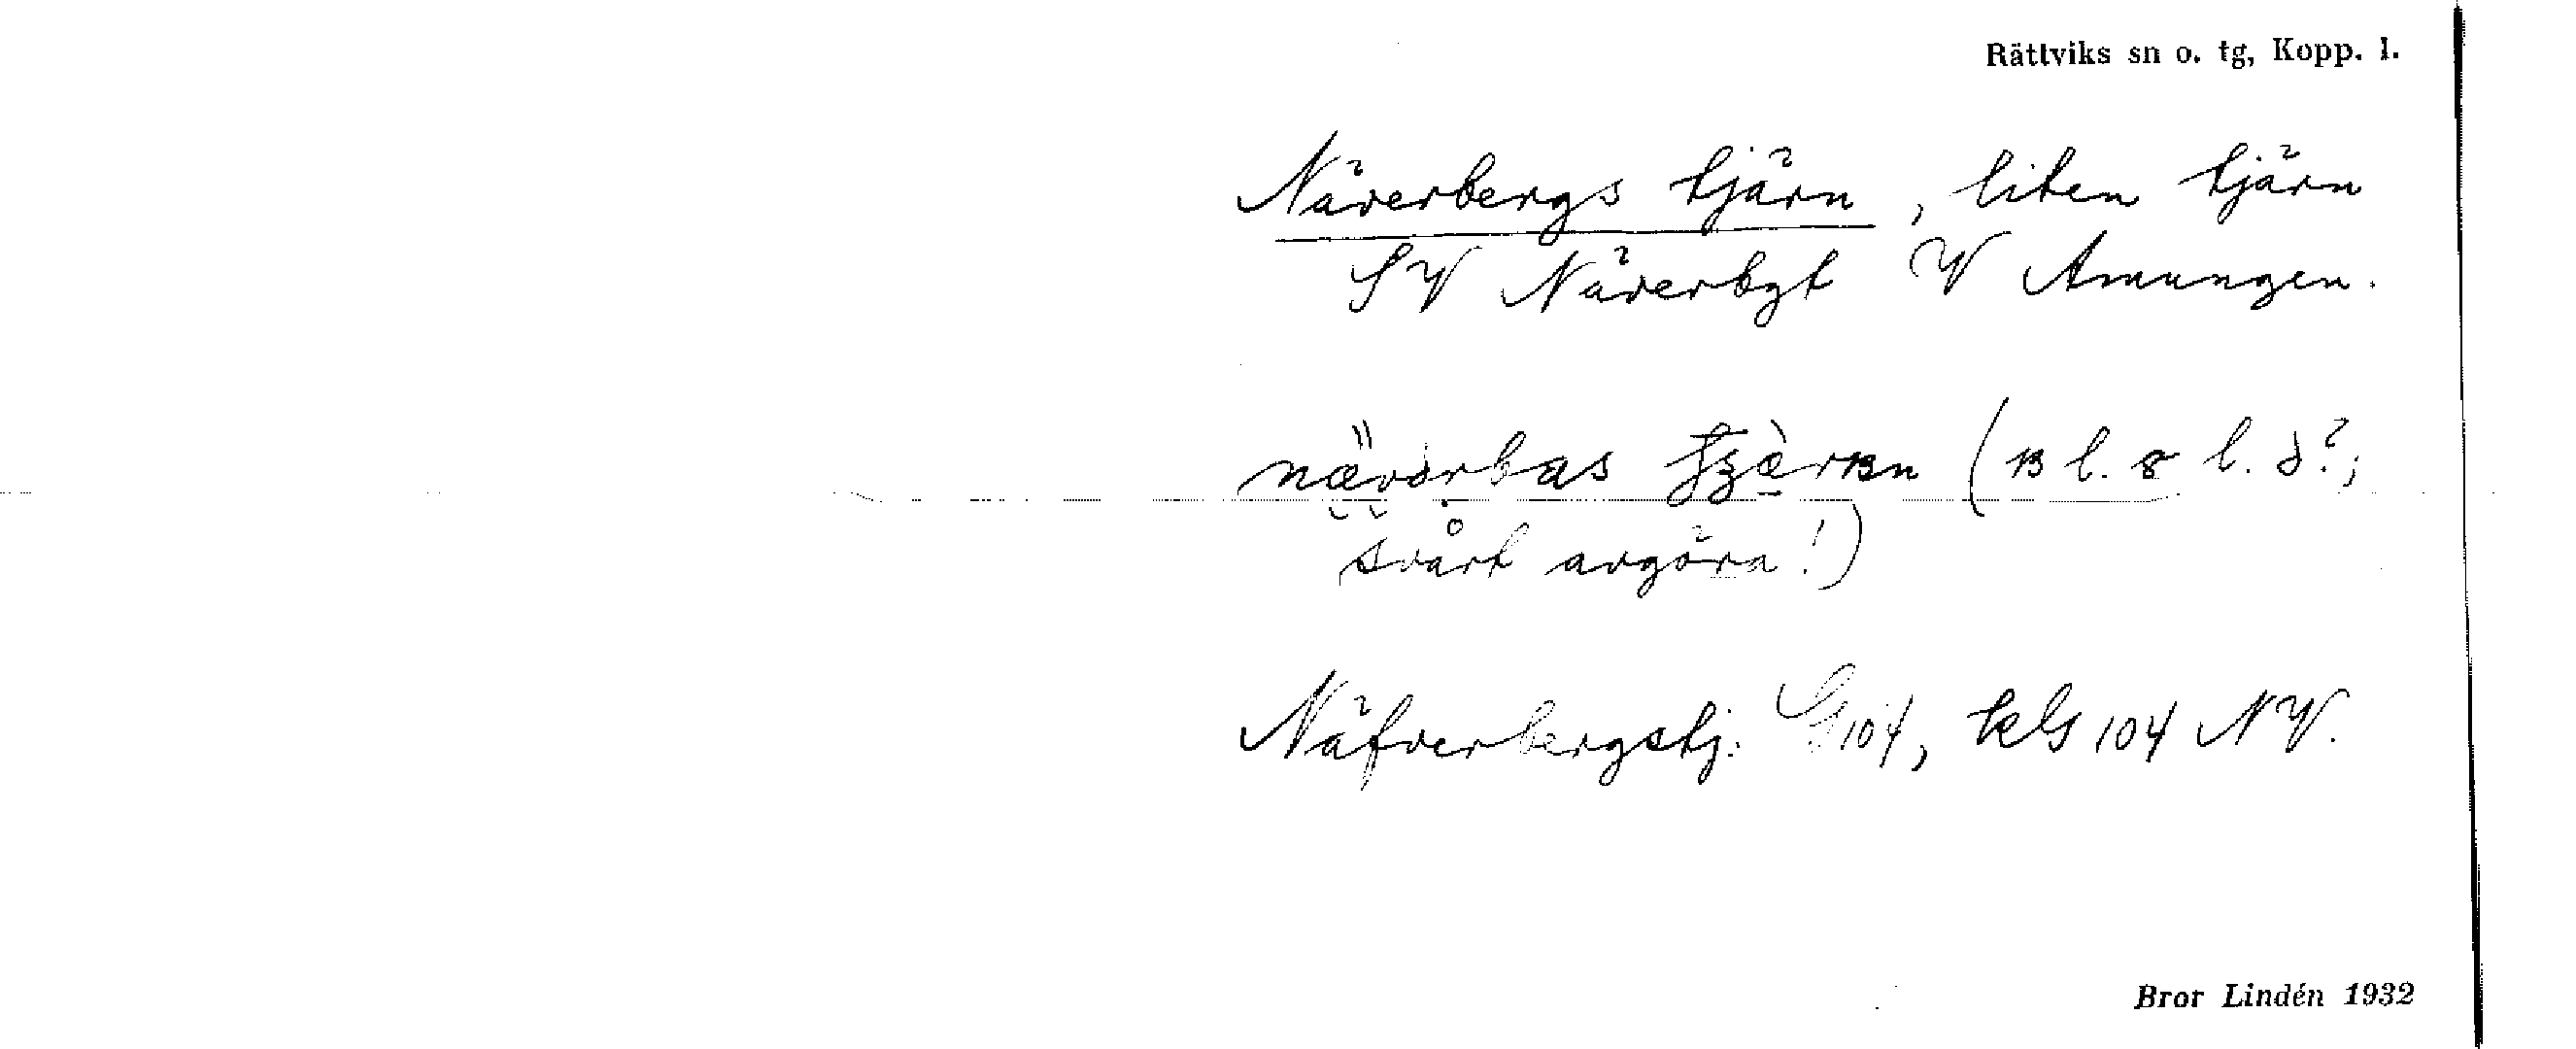 Rättviks sn o. tg, Kopp. l.
Näverbergs tjärn, liten tjärn
SV Näverbgt V Amungen.
l. l.
svårt avgöra!)
Näfverbergstj. G104, kls 104 NV.
Bror Lindén 1932